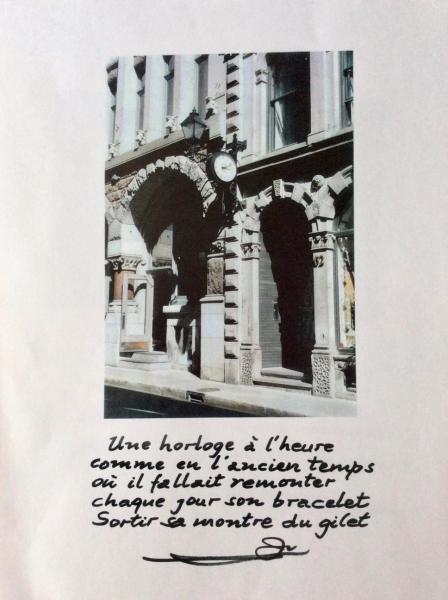 Une horloge à l'heure
comme en l'ancien temps
où il fallait remonter
chaque jour son bracelet
Sortir sa montre du gilet